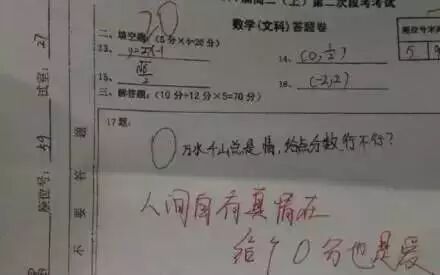 20
届高二(上)第二次段考考试
数学(文科)答题卷
二、填空题:(5分×4=20分)
13、y=2x-1 14、(0,½)
15、√6/2 16、(-2,2)
三、解答题:(10分+12分×5=70分)
17题:
0
万水千山总是情,给点分数行不行?
人间自有真情在
给个0分也是爱
试室:27
座位号:49
不要答题
座位号
5